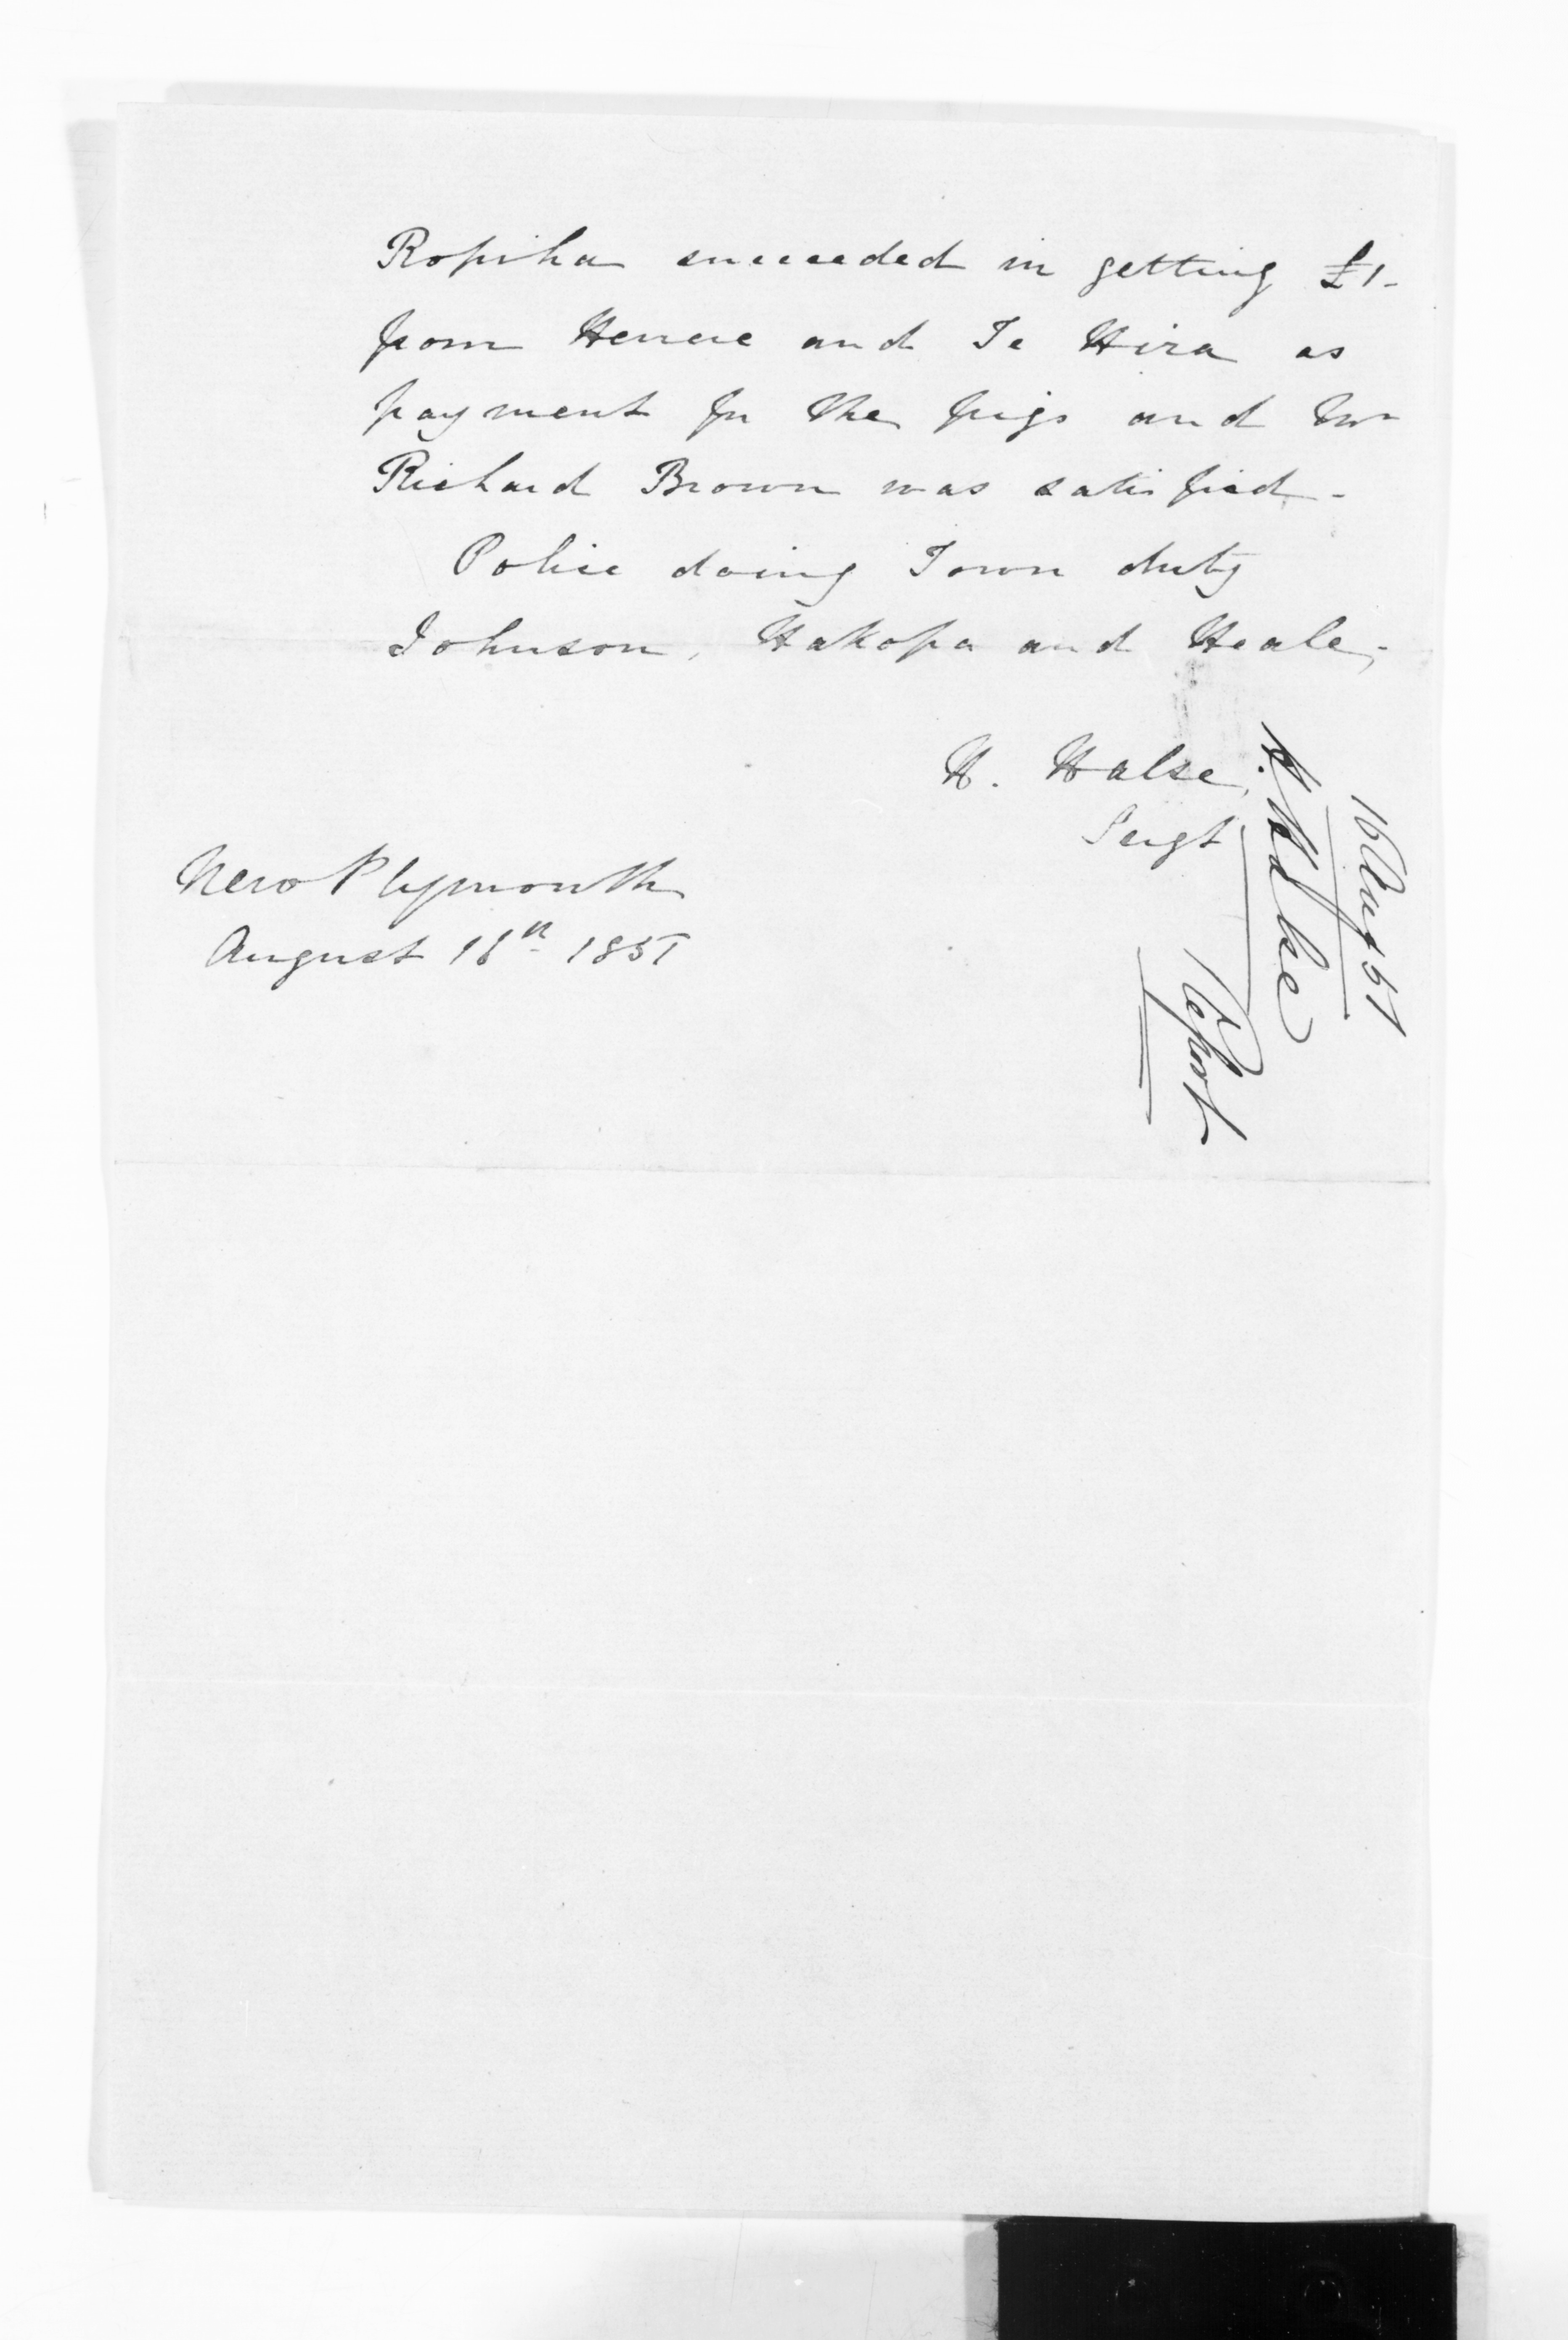 Ropiha succeeded in getting £1-
from Henere and Te Hira as
payment for the pigs and Mr
Richard Brown was satisfied -
Police doing Town duty
Johnson, Hakopa and Heale,-
H. Halse,
Sergt
New Plymouth
August 16th 1851
16 Augt 51
H. Halse
Report